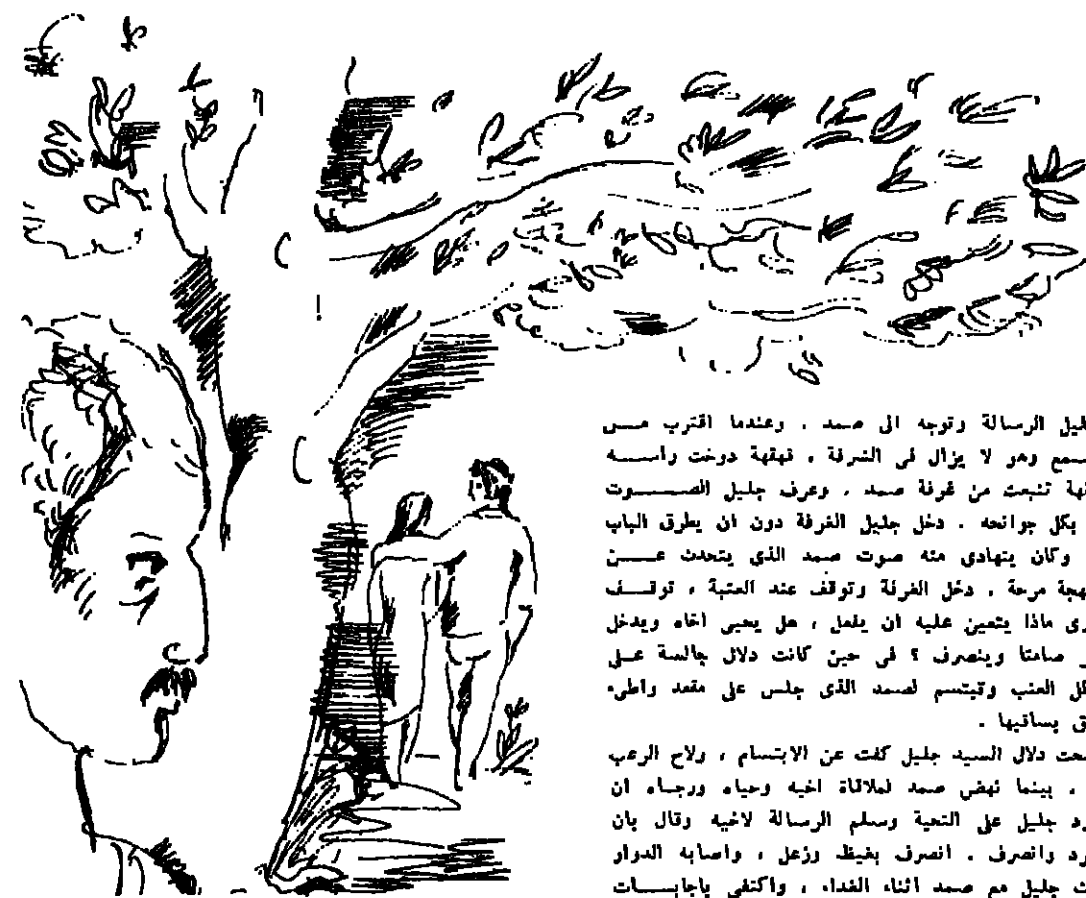 ليل الرسالة وتوجه الى صمد . وعندما اقترب مـــن
سمع وهو لا يزال فى الشرفة ، قهقهة دوخت رأســـه
قهة تنبعث من غرفة صمد . وعرف جليل الصـــــوت
بكل جوانحه . دخل جليل الغرفة دون ان يطرق الباب
وكان يتهادى منه صوت صمد الذى يتحدث عـــــن
هجة مرحة . دخل الغرفة وتوقف عند العتبة ، توقـــف
رى ماذا يتعين عليه ان يفعل ، هل يحيى اخاه ويدخل
صامتا وينصرف ؟ فى حين كانت دلال جالسة عـــلى
كل العنب وتبتسم لصمد الذى جلس على مقعد واطىء
ق بساقيها .
محت دلال السيد جليل كفت عن الابتسام ، ولاح الرعب
، بينما نهض صمد لملاقاة اخيه وحياه ورجـــاه ان
رد جليل على التحية وسلم الرسالة لاخيه وقال بان
رد وانصرف . انصرف بغيظ وزعل ، واصابه الدوار
ث جليل مع صمد اثناء الغداء ، واكتفى باجابـــــات